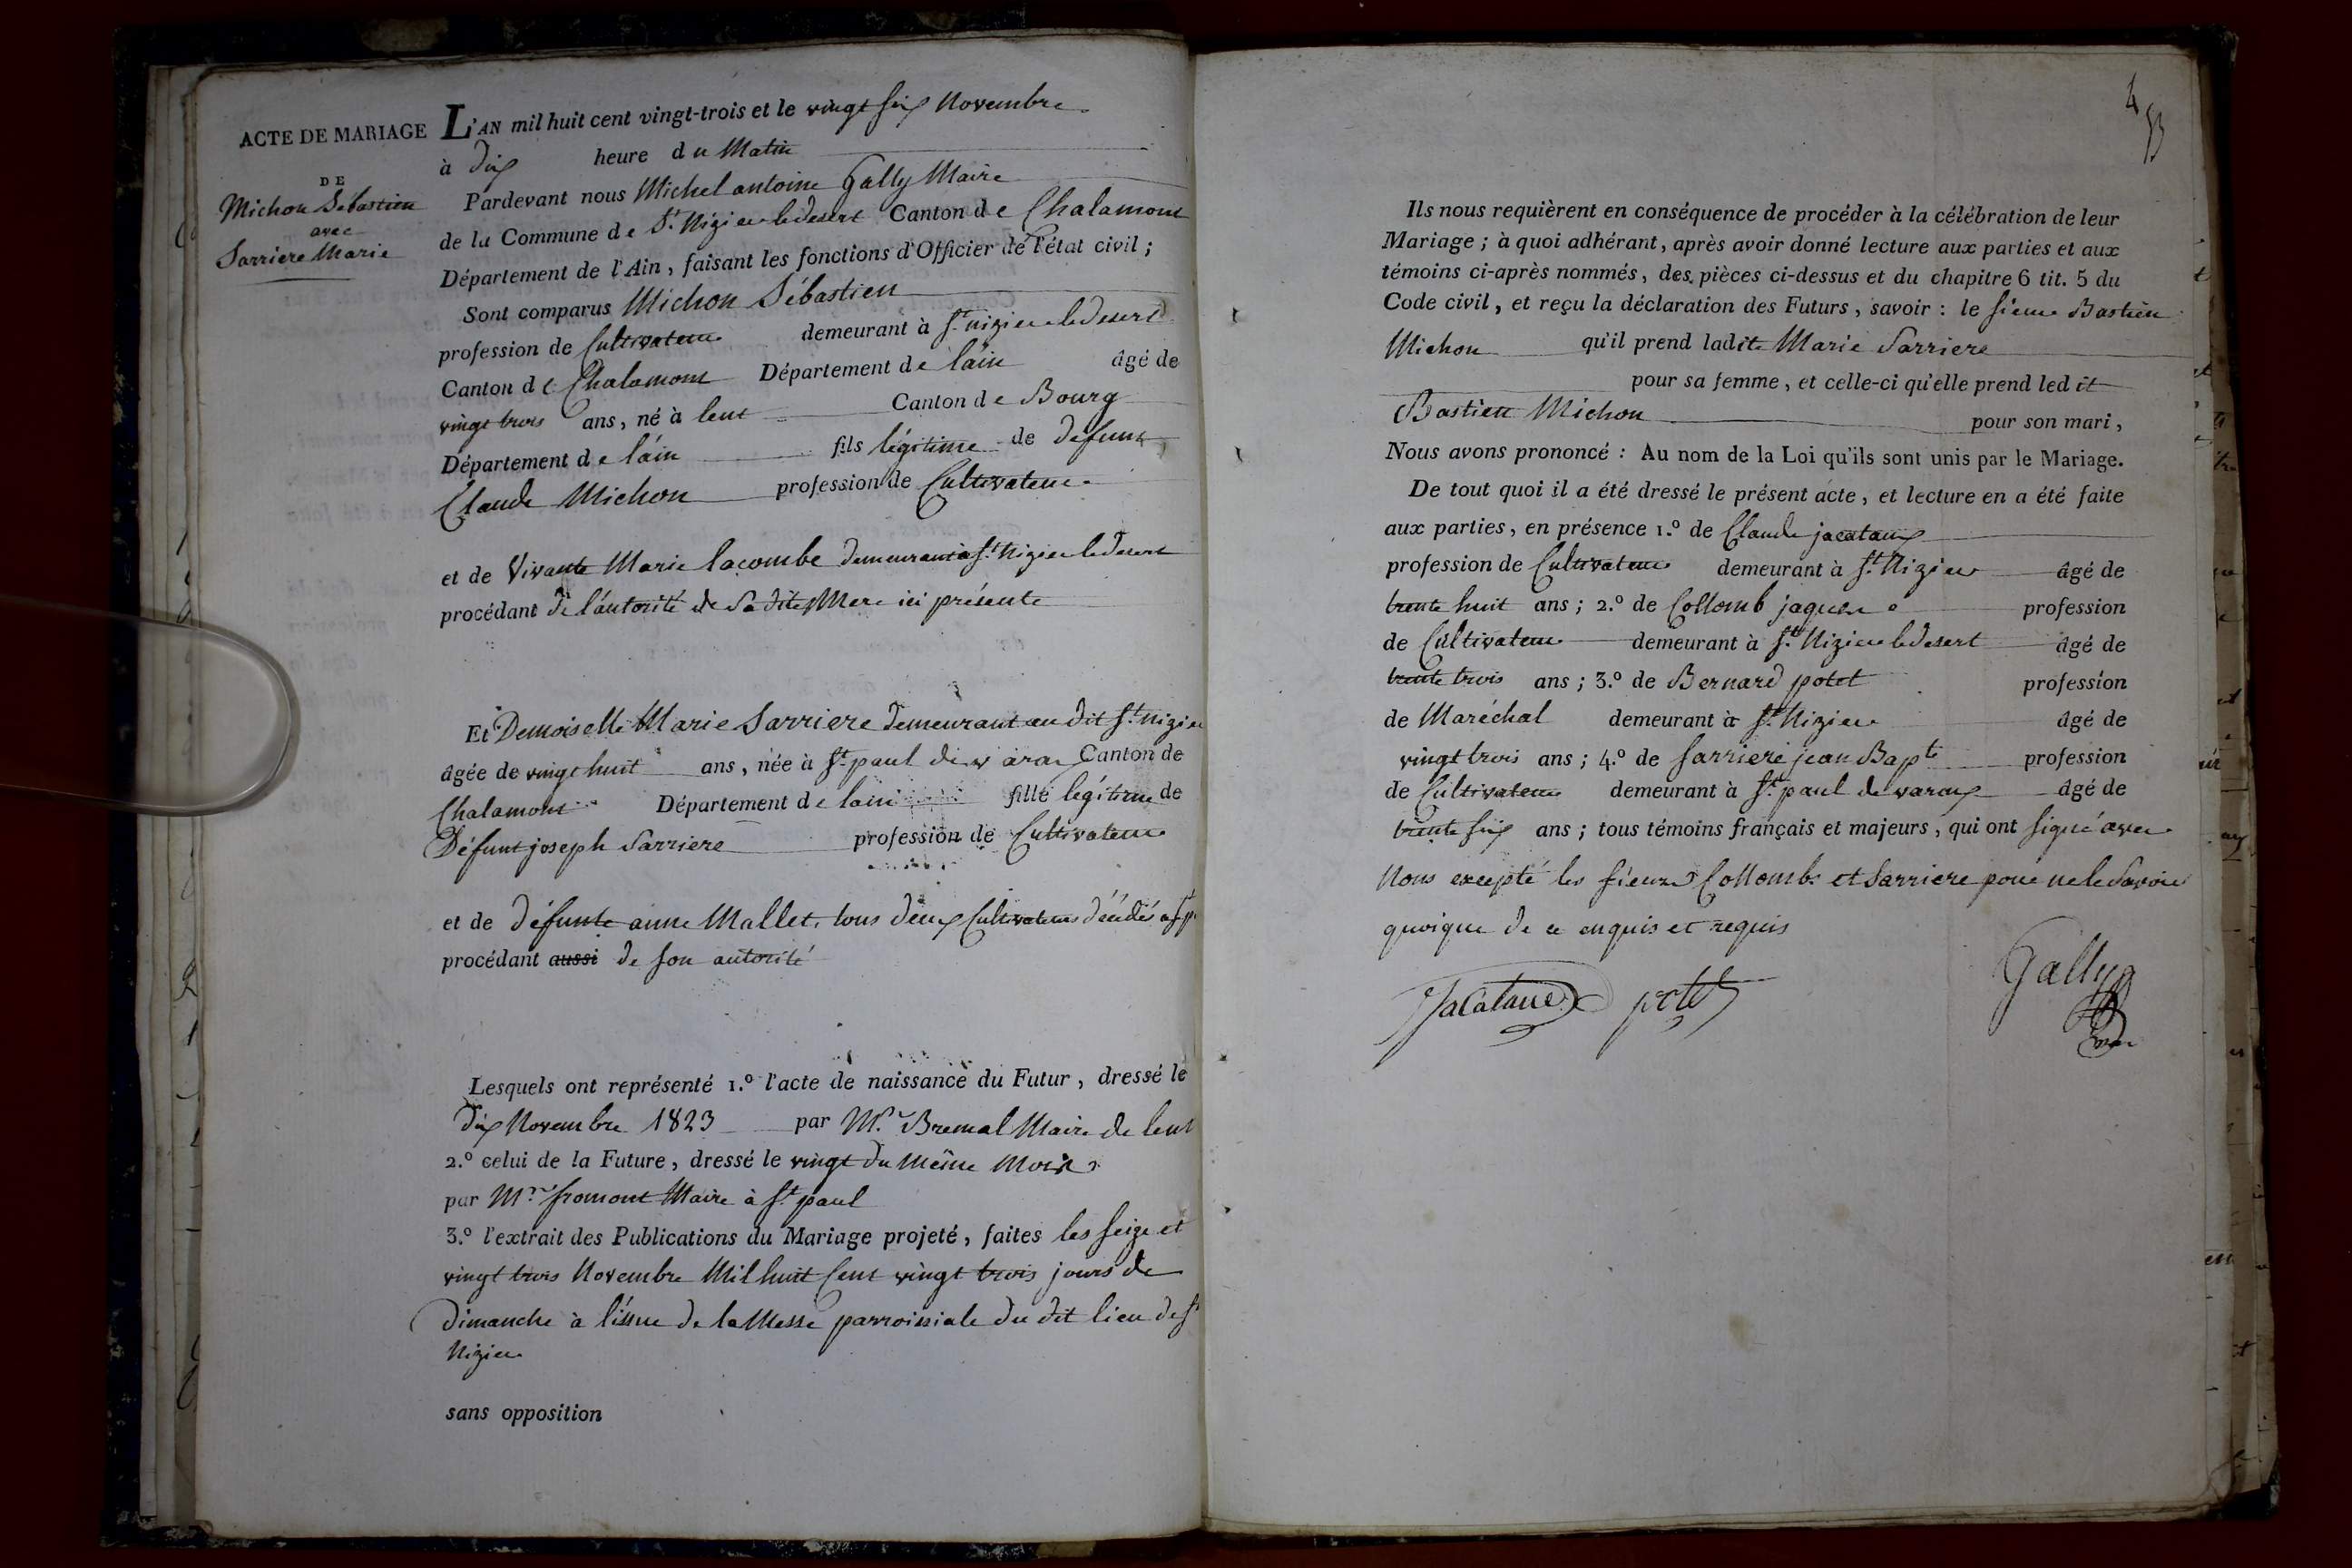 ACTE DE MARIAGE
DE
Michon Sébastien
avec
Sarriere Marie
L'AN mil huit cent vingt-trois et le vingt six Novembre
à dix heure du Matin
Pardevant nous Michel antoine Gally Maire
de la Commune de St. Nizier le desert Canton de Chalamont
Département de l'Ain, faisant les fonctions d'Officier de l'état civil ;
Sont comparus Michon Sébastien
profession de Cultivateur demeurant à St. nizier le desert
Canton de Chalamont Département de lain âgé de
vingt trois ans, né à lent Canton de Bourg
Département de lain fils légitime de defunt
Claude Michon profession de Cultivateur
et de Vivante Marie lacombe demeurant a St. Nizier le desert
procédant de l'autorité de Sa dite Mere ici présente
Et Demoiselle Marie Sarriere demeurant au dit St. nizier
âgée de vingt huit ans, née à St. paul de varax Canton de
Chalamont Département de lain fille légitime de
Défunt joseph Sarriere profession de Cultivateur
et de défunte anne Mallet, tous deux Cultivateurs décédés a St p
procédant aussi de son autorité
Lesquels ont représenté 1.º l'acte de naissance du Futur, dressé le
dix Novembre 1823 par Mr. Bremal Maire de lent
2.º celui de la Future, dressé le vingt du Même Mois
par Mr. fromont Maire à St. paul
3.º l'extrait des Publications du Mariage projeté, faites les seize et
vingt trois Novembre Mil huit Cent vingt trois jours de
dimanche à l'issue de la Messe parroissiale du dit lieu de St
Nizier
sans opposition
Ils nous requièrent en conséquence de procéder à la célébration de leur
Mariage ; à quoi adhérant, après avoir donné lecture aux parties et aux
témoins ci-après nommés, des pièces ci-dessus et du chapitre 6 tit. 5 du
Code civil, et reçu la déclaration des Futurs, savoir : le sieur Bastien
Michon qu'il prend ladite Marie Sarriere
pour sa femme, et celle-ci qu'elle prend ledit
Bastien Michon pour son mari,
Nous avons prononcé : Au nom de la Loi qu'ils sont unis par le Mariage.
De tout quoi il a été dressé le présent acte, et lecture en a été faite
aux parties, en présence 1.º de Claude jacataux
profession de Cultivateur demeurant à St. Nizier âgé de
trente huit ans ; 2.º de Collomb jaques profession
de Cultivateur demeurant à St. Nizier le desert âgé de
trente trois ans ; 3.º de Bernard potet profession
de Maréchal demeurant à St. Nizier âgé de
vingt trois ans ; 4.º de Sarriere jean Bapte profession
de Cultivateur demeurant à St. paul de varax âgé de
trente six ans ; tous témoins français et majeurs, qui ont signé avec
Nous excepté les sieurs Collomb et Sarriere pour ne le Savoir
quoique de ce enquis et requis
Jacataue potet Gally